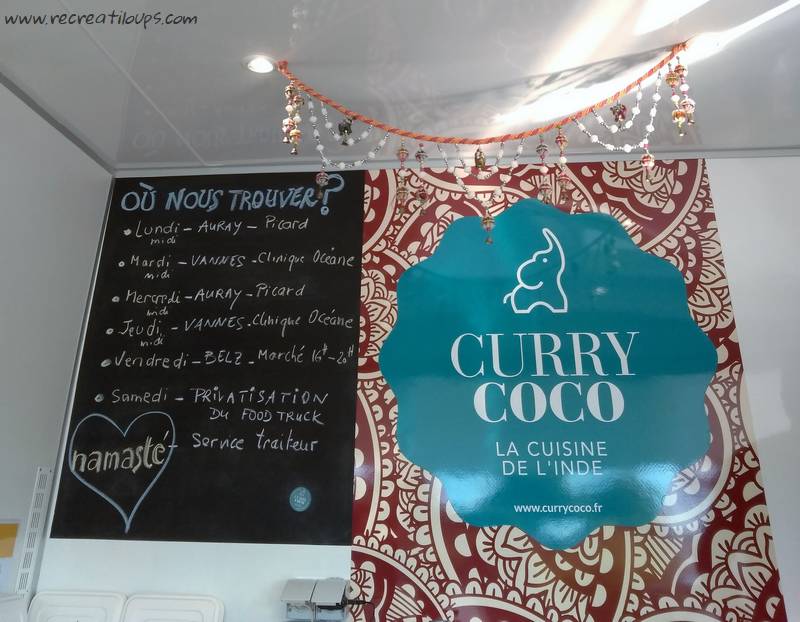 www.recreatiloups.com
OÙ NOUS TROUVER?
• Lundi - AURAY - Picard
midi
• Mardi - VANNES - Clinique Océane
midi
• Mercredi - AURAY - Picard
midi
• Jeudi - VANNES - Clinique Océane
midi
• Vendredi - BELZ - Marché 16H-20H
• Samedi - PRIVATISATION
DU FOOD TRUCK
- Service traiteur
namasté
CURRY
COCO
LA CUISINE
DE L'INDE
www.currycoco.fr